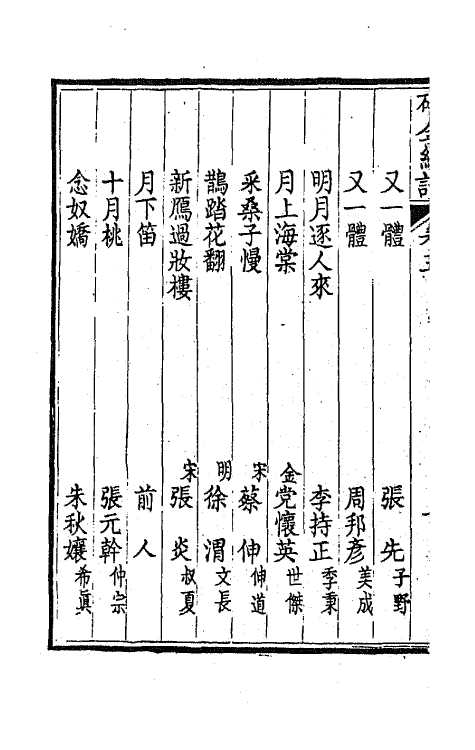 又一體 張先子野
又一體 周邦彥美成
明月逐人來 李持正季秉
月上海棠 金党懷英世傑
采桑子慢 宋蔡伸伸道
鵲踏花翻 明徐渭文長
新鴈過妝樓 宋張炎叔夏
月下笛 前人
十月桃 張元幹仲宗
念奴嬌 朱秋孃希真